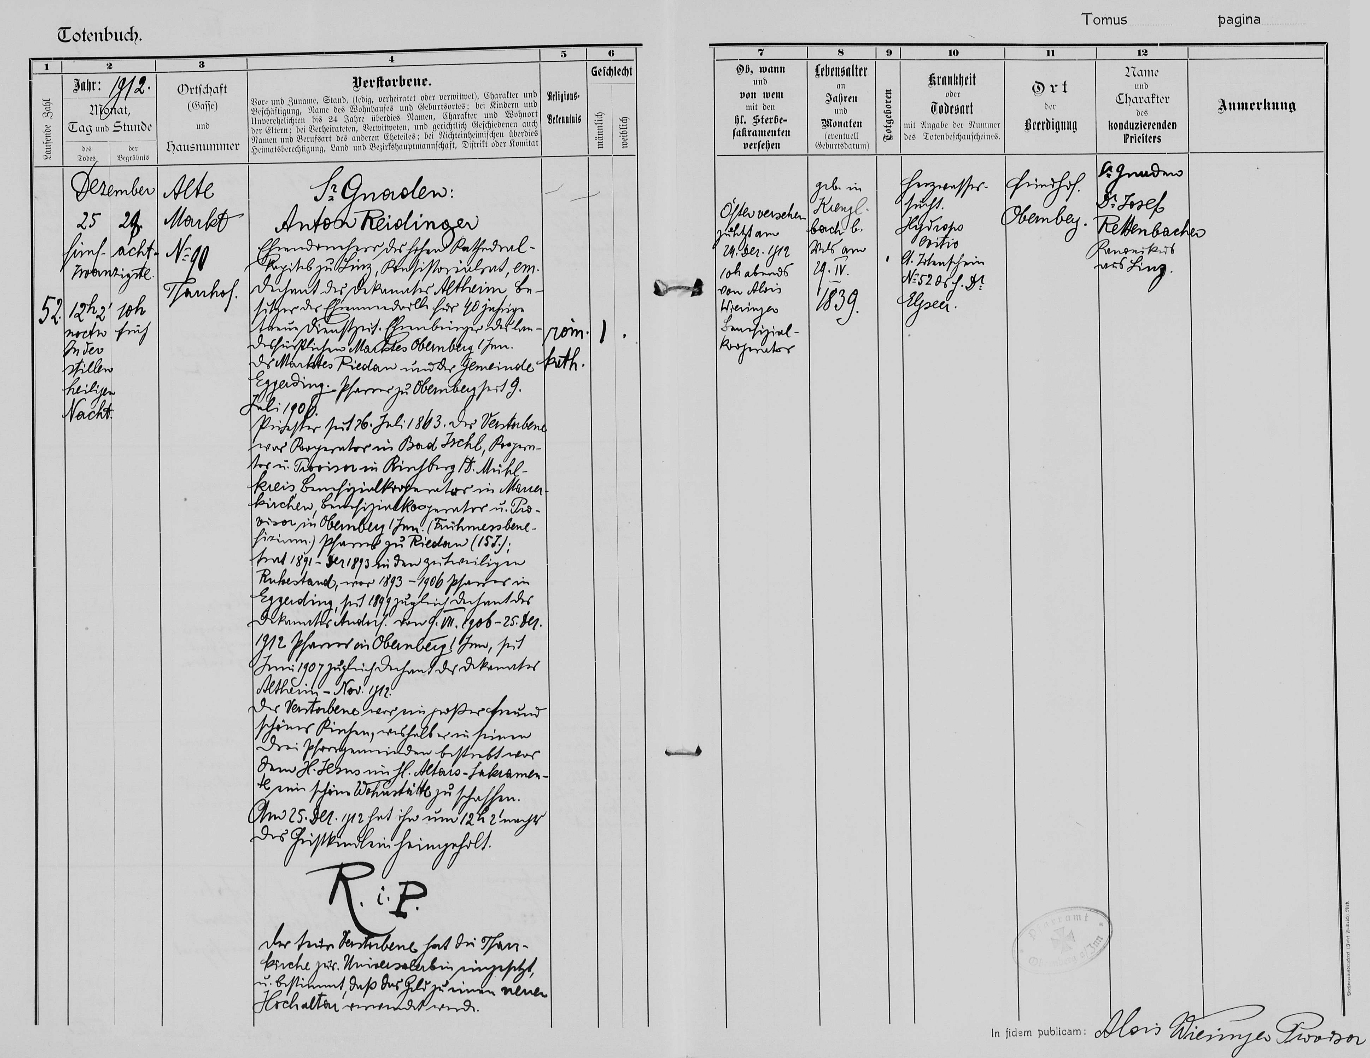 Totenbuch.
Tomus pagina
1 2 3 4 5 6
Laufende Zahl
Jahr: 1912.
Monat,
Tag und Stunde
des Todes
der Begräbnis
Ortschaft
(Gasse)
und
Hausnummer
Verstorbene.
Vor- und Zuname, Stand, (ledig, verheiratet oder verwitwet), Charakter und
Beschäftigung, Name des Wohnhauses und Geburtsortes; bei Kindern und
Unverehelichten bis 24 Jahre überdies Namen, Charakter und Wohnort
der Eltern; bei Verheirateten, Verwitweten, und gerichtlich Geschiedenen auch
Namen und Berufsort des anderen Eheteiles; bei Nichteinheimischen überdies
Heimatsberechtigung, Land und Bezirkshauptmannschaft, Distrikt oder Komitat
Religions-
Bekenntnis
Geschlecht
männlich
weiblich
Dezember
25 29
fünf- acht-
zwanzigste.
52. 12h 2' 10h
nachts früh
In der
stillen
heiligen
Nacht.
Alte
Markt
No 90
Pfarrhof.
Sr Gnaden:
Anton Reidinger
Ehrendomherr des hohen Kathedral-
kapitels zu Linz, Konsistorialrat, em.
Dechant des Dekanates Altheim, Be-
sitzer der Ehrenmedaille für 40 jährige
treue Dienstzeit. Ehrenbürger des lan-
desfürstlichen Marktes Obernberg/Inn.
des Marktes Riedau und der Gemeinde
Eggerding. Pfarrer zu Obernberg seit 9.
Juli 1906.
Priester seit 26. Juli 1863. Der Verstorbene
war Kooperator in Bad Ischl, Koopera-
tor u. Provisor in Kirchberg Mühl-
kreis Benefizialkooperator in
kirchen, Benefizialkooperator u. Pro-
visor in Obernberg/Inn. (Frühmessbene-
fizium.) Pfarrer zu Riedau (15 J.);
trat 1891 - 1893 in den zeitweiligen
Ruhestand, war 1893 - 1906 Pfarrer in
Eggerding, seit 1899 zugleich Dechant des
Dekanates Andorf. von 9. VII. 1906 - 25. Dez.
1912 Pfarrer in Obernberg/Inn, seit
Juni 1907 zugleich Dechant des Dekanates
Altheim - Nov. 1912.
Der Verstorbene war ein großer Freund
schöner Kirchen, weshalb er in seinen
drei Pfarrgemeinden bestrebt war
dem H. Jesus im hl. Altars-Sakramen-
te eine schöne Wohnstätte zu schaffen.
Am 25. Dez. 1912 hat ihn um 12h 2' nachts
das Christkindlein heimgeholt.
R. i. P.
Der teure Verstorbene hat die Pfarr-
kirche zur Universalerbin eingesetzt,
u. bestimmt, daß das Geld zu einem neuen
Hochaltar verwendet werde.
röm.
kath.
1 .
7 8 9 10 11 12
Ob, wann
und
von wem
mit den
hl. Sterbe-
sakramenten
versehen
Lebensalter
an
Jahren
und
Monaten
(eventuell
Geburtsdatum)
Totgeboren
Krankheit
oder
Todesart
mit Angabe der Nummer
des Totenbeschauscheines.
Ort
der
Beerdigung
Name
und
Charakter
des
konduzierenden
Priesters
Anmerkung
Öfter versehen
zuletzt am
24. Dez. 1912
10h abends
von Alois
Wieninger
Benefizial-
kooperator
geb. in
Krengl-
bach b.
Wels am
29. IV.
1839.
Herzwasser-
sucht.
Hydrops
lt. Totenschein
No 52 Dr
Friedhof.
Obernberg.
Sr Gnaden
Dr Josef
Rettenbacher
Kanonikus
aus Linz.
Pfarramt
Obernberg a/Inn
In fidem publicam: Alois Wieninger Provisor